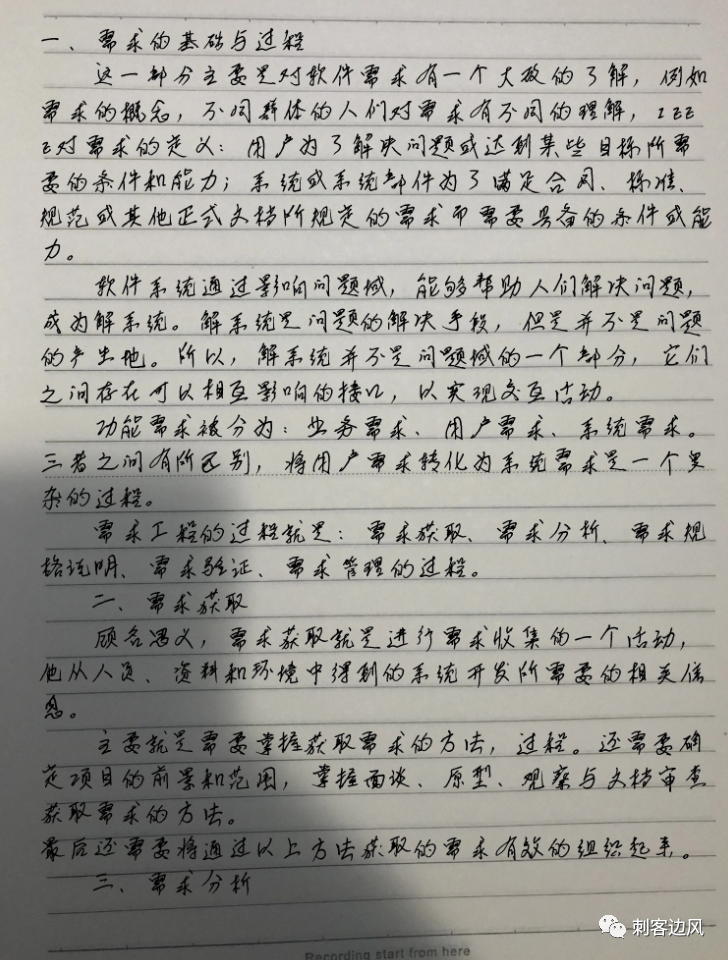 一、需求的基础与过程
这一部分主要是对软件需求有一个大致的了解，例如
需求的概念，不同群体的人们对需求有不同的理解，IEE
E对需求的定义：用户为了解决问题或达到某些目标所需
要的条件和能力；系统或系统部件为了满足合同、标准、
规范或其他正式文档所规定的需求而需要具备的条件或能
力。
软件系统通过影响问题域，能够帮助人们解决问题，
成为解系统。解系统是问题的解决手段，但是并不是问题
的产生地。所以，解系统并不是问题域的一个部分，它们
之间存在可以相互影响的接口，以实现交互活动。
功能需求被分为：业务需求、用户需求、系统需求。
三者之间有所区别，将用户需求转化为系统需求是一个复
杂的过程。
需求工程的过程就是：需求获取、需求分析、需求规
格说明、需求验证、需求管理的过程。
二、需求获取
顾名思义，需求获取就是进行需求收集的一个活动，
他从人员、资料和环境中得到的系统开发所需要的相关信
息。
主要就是需要掌握获取需求的方法，过程。还需要确
定项目的前景和范围，掌握面谈、原型、观察与文档审查
获取需求的方法。
最后还需要将通过以上方法获取的需求有效的组织起来。
三、需求分析
Recording start from here
刺客边风